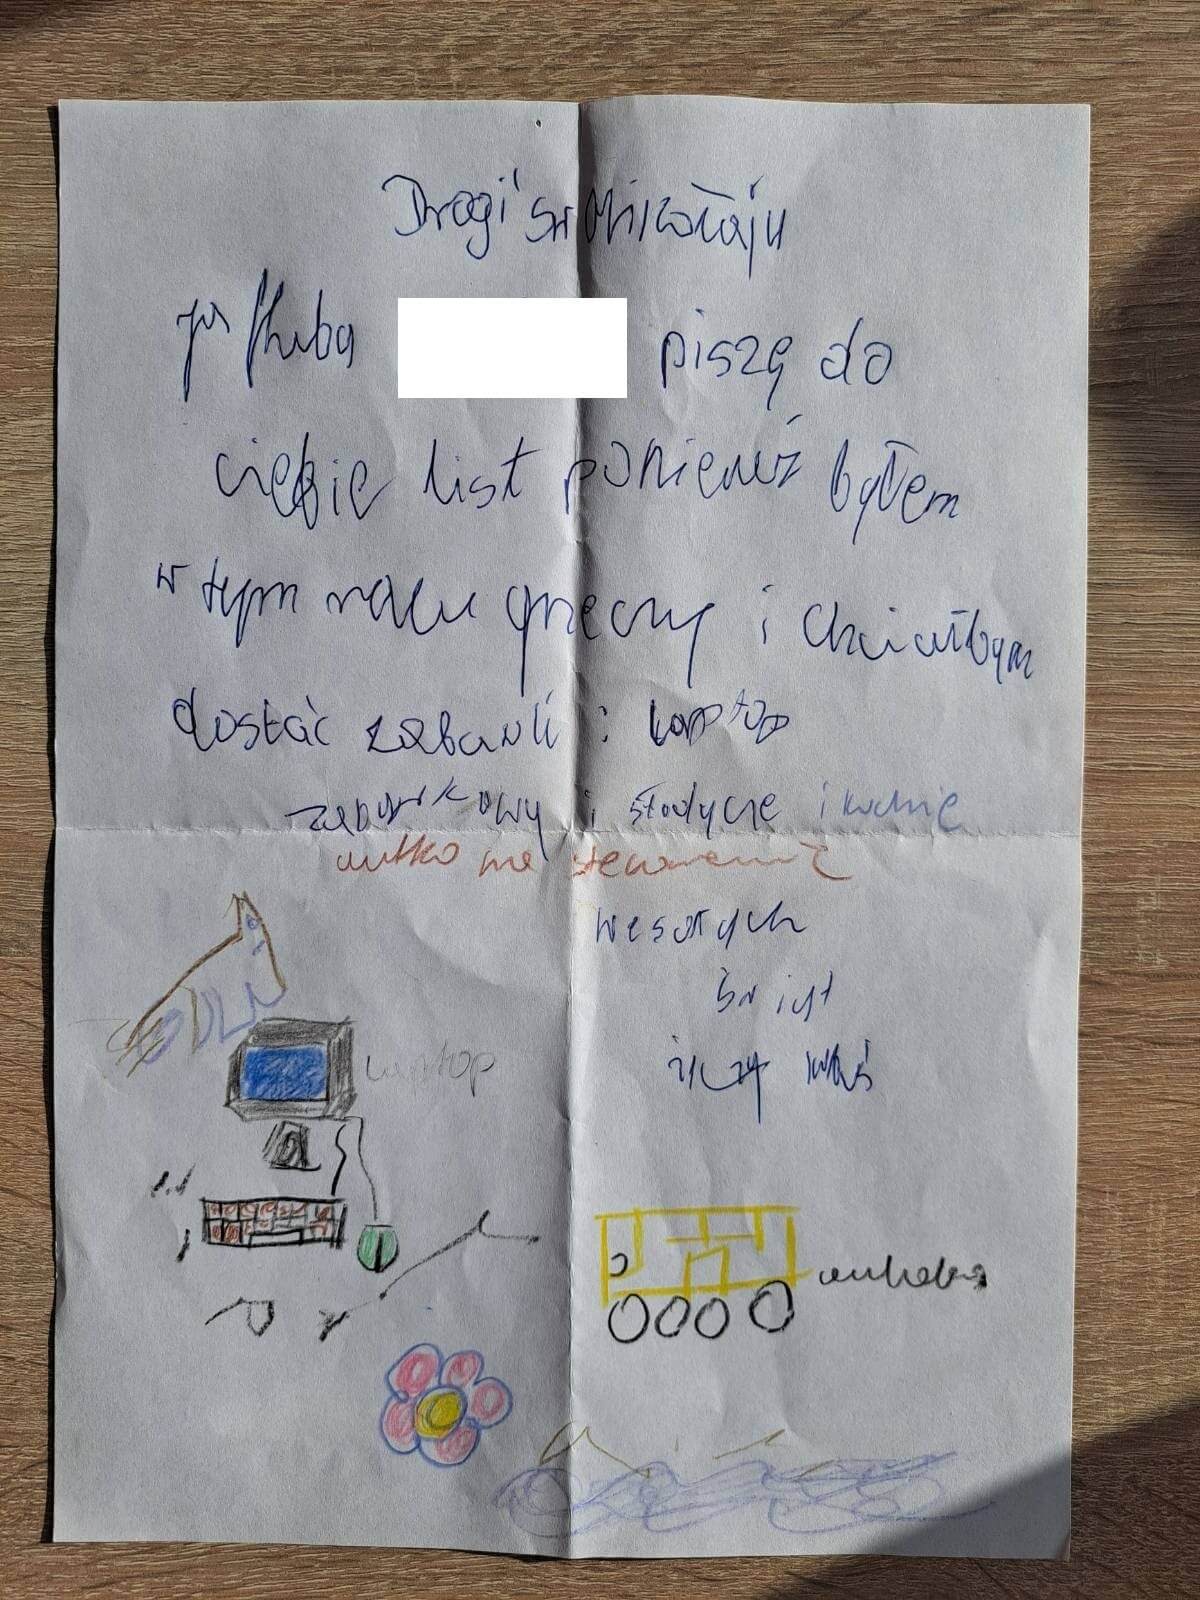 Drogi św Mikołaju
ja Kuba piszę do
ciebie list ponieważ byłem
w tym roku grzeczny i chciałbym
dostać zabawki: laptop
zabawkowy i słodycze i kuchnię
autko na sterowanie
wesołych
świąt
życzy
laptop